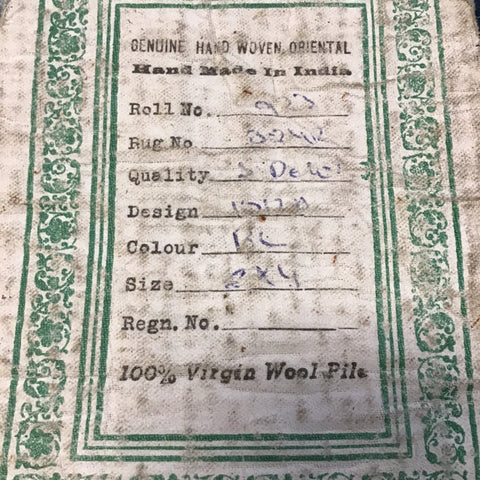 GENUINE HAND WOVEN ORIENTAL
Hand Made In India
Roll No.
Rug No
Quality
Design
Colour
Size 2x4
Regn. No.
100% Virgin Wool Pile